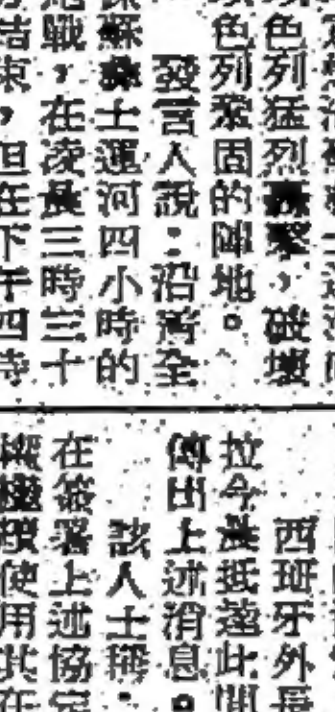 色列猛烈轟擊，破壞
色列鞏固的陣地。
發言人說：沿著全
蘇彝士運河四小時的
戰，在凌晨三時三十
結束，但在下午四時
西班牙外長
拉今晨抵達此間
傳出上述消息。
該人士稱：
在簽署上述協定
使用其在